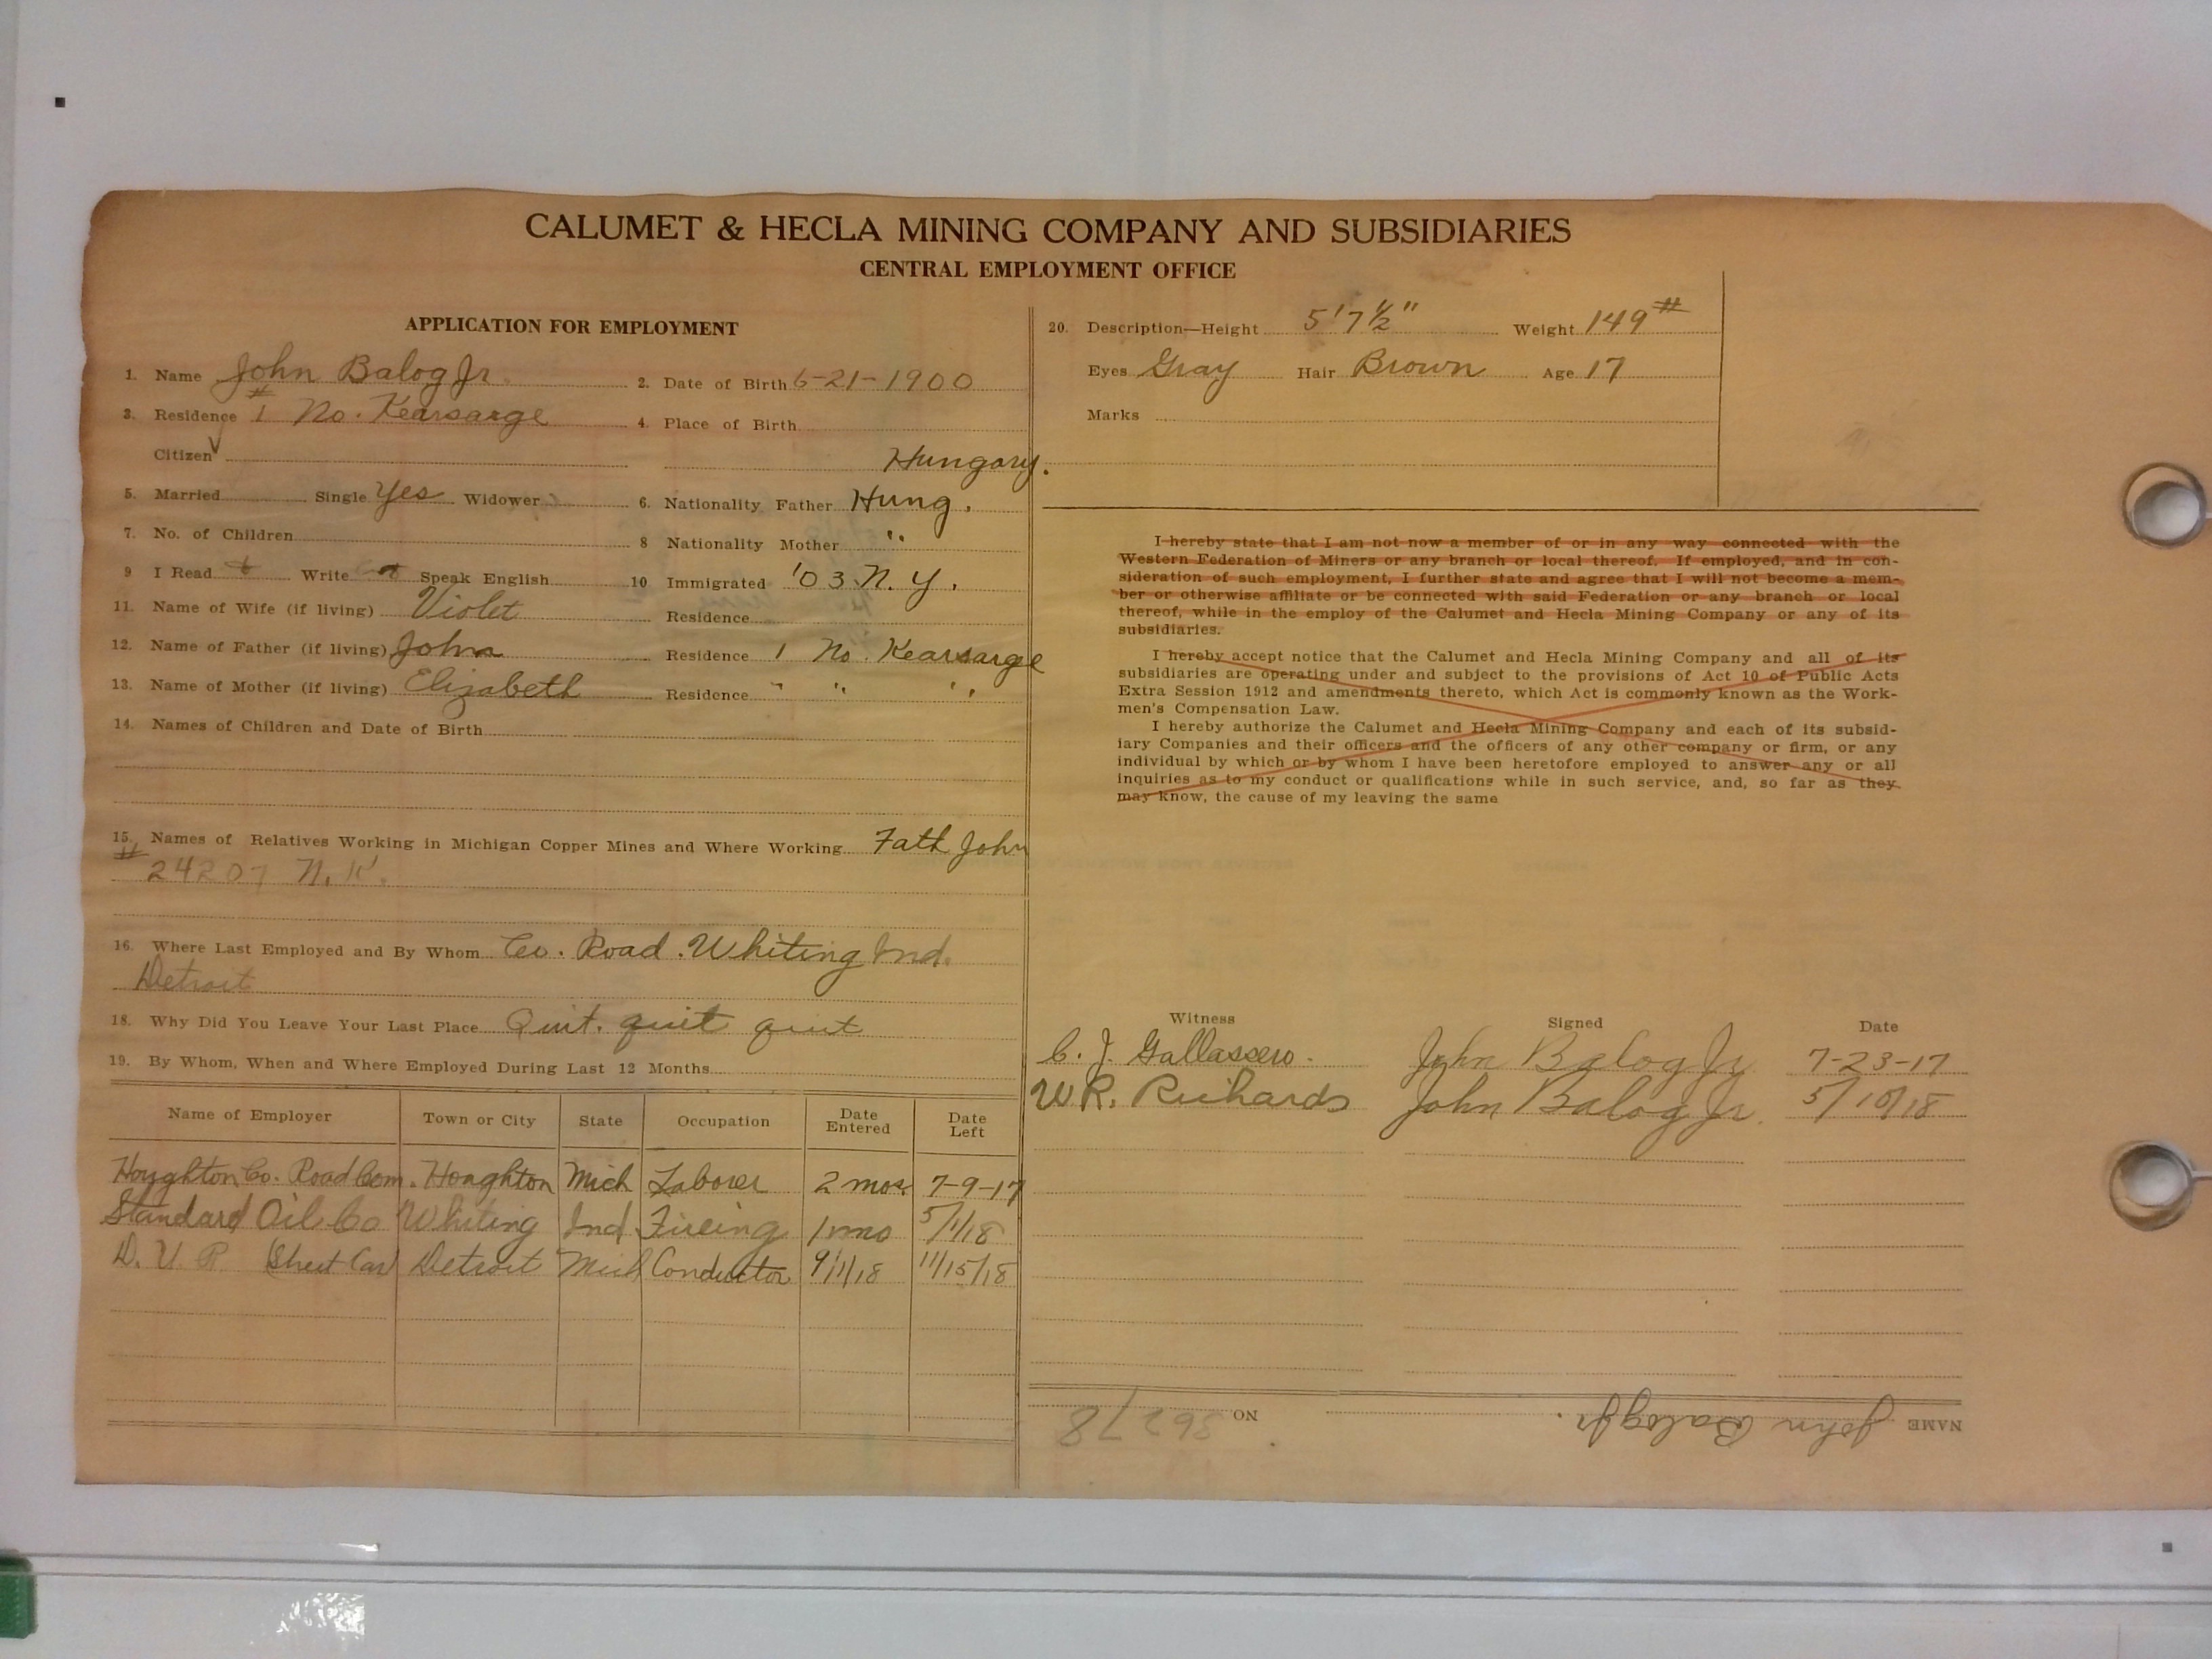 CALUMET & HECLA MINING COMPANY AND SUBSIDIARIES
CENTRAL EMPLOYMENT OFFICE
APPLICATION FOR EMPLOYMENT
1. Name John Balog Jr. 2. Date of Birth 6-21-1900
3. Residence #1 No. Kearsarge 4. Place of Birth
Citizen Hungary.
5. Married Single Yes Widower 6. Nationality Father Hung.
7. No. of Children 8 Nationality Mother "
9 I Read Write Speak English 10 Immigrated '03 N.Y.
11. Name of Wife (if living) Violet Residence
12. Name of Father (if living) John Residence 1 No. Kearsarge
13. Name of Mother (if living) Elizabeth Residence " " "
14. Names of Children and Date of Birth
15. Names of Relatives Working in Michigan Copper Mines and Where Working Fath John
# 24207 N.K.
16. Where Last Employed and By Whom Co. Road. Whiting Ind.
Detroit
18. Why Did You Leave Your Last Place Quit. quit quit
19. By Whom, When and Where Employed During Last 12 Months
Name of Employer Town or City State Occupation Date Entered Date Left
Houghton Co. Road Com. Houghton Mich Laborer 2 mos. 7-9-17
Standard Oil Co Whiting Ind Fireing 1 mo 5/1/18
D. U. R (Street Car) Detroit Mich Conductor 9/1/18 11/15/18
20. Description—Height 5'7½" Weight 149#
Eyes Gray Hair Brown Age 17
Marks
I hereby state that I am not now a member of or in any way connected with the
Western Federation of Miners or any branch or local thereof. If employed, and in con-
sideration of such employment, I further state and agree that I will not become a mem-
ber or otherwise affiliate or be connected with said Federation or any branch or local
thereof, while in the employ of the Calumet and Hecla Mining Company or any of its
subsidiaries.
I hereby accept notice that the Calumet and Hecla Mining Company and all of its
subsidiaries are operating under and subject to the provisions of Act 10 of Public Acts
Extra Session 1912 and amendments thereto, which Act is commonly known as the Work-
men's Compensation Law.
I hereby authorize the Calumet and Hecla Mining Company and each of its subsid-
iary Companies and their officers and the officers of any other company or firm, or any
individual by which or by whom I have been heretofore employed to answer any or all
inquiries as to my conduct or qualifications while in such service, and, so far as they
may know, the cause of my leaving the same
Witness Signed Date
C. J. John Balog Jr 7-23-17
W R. Richards John Balog Jr. 5/10/18
NAME John Balog Jr. NO